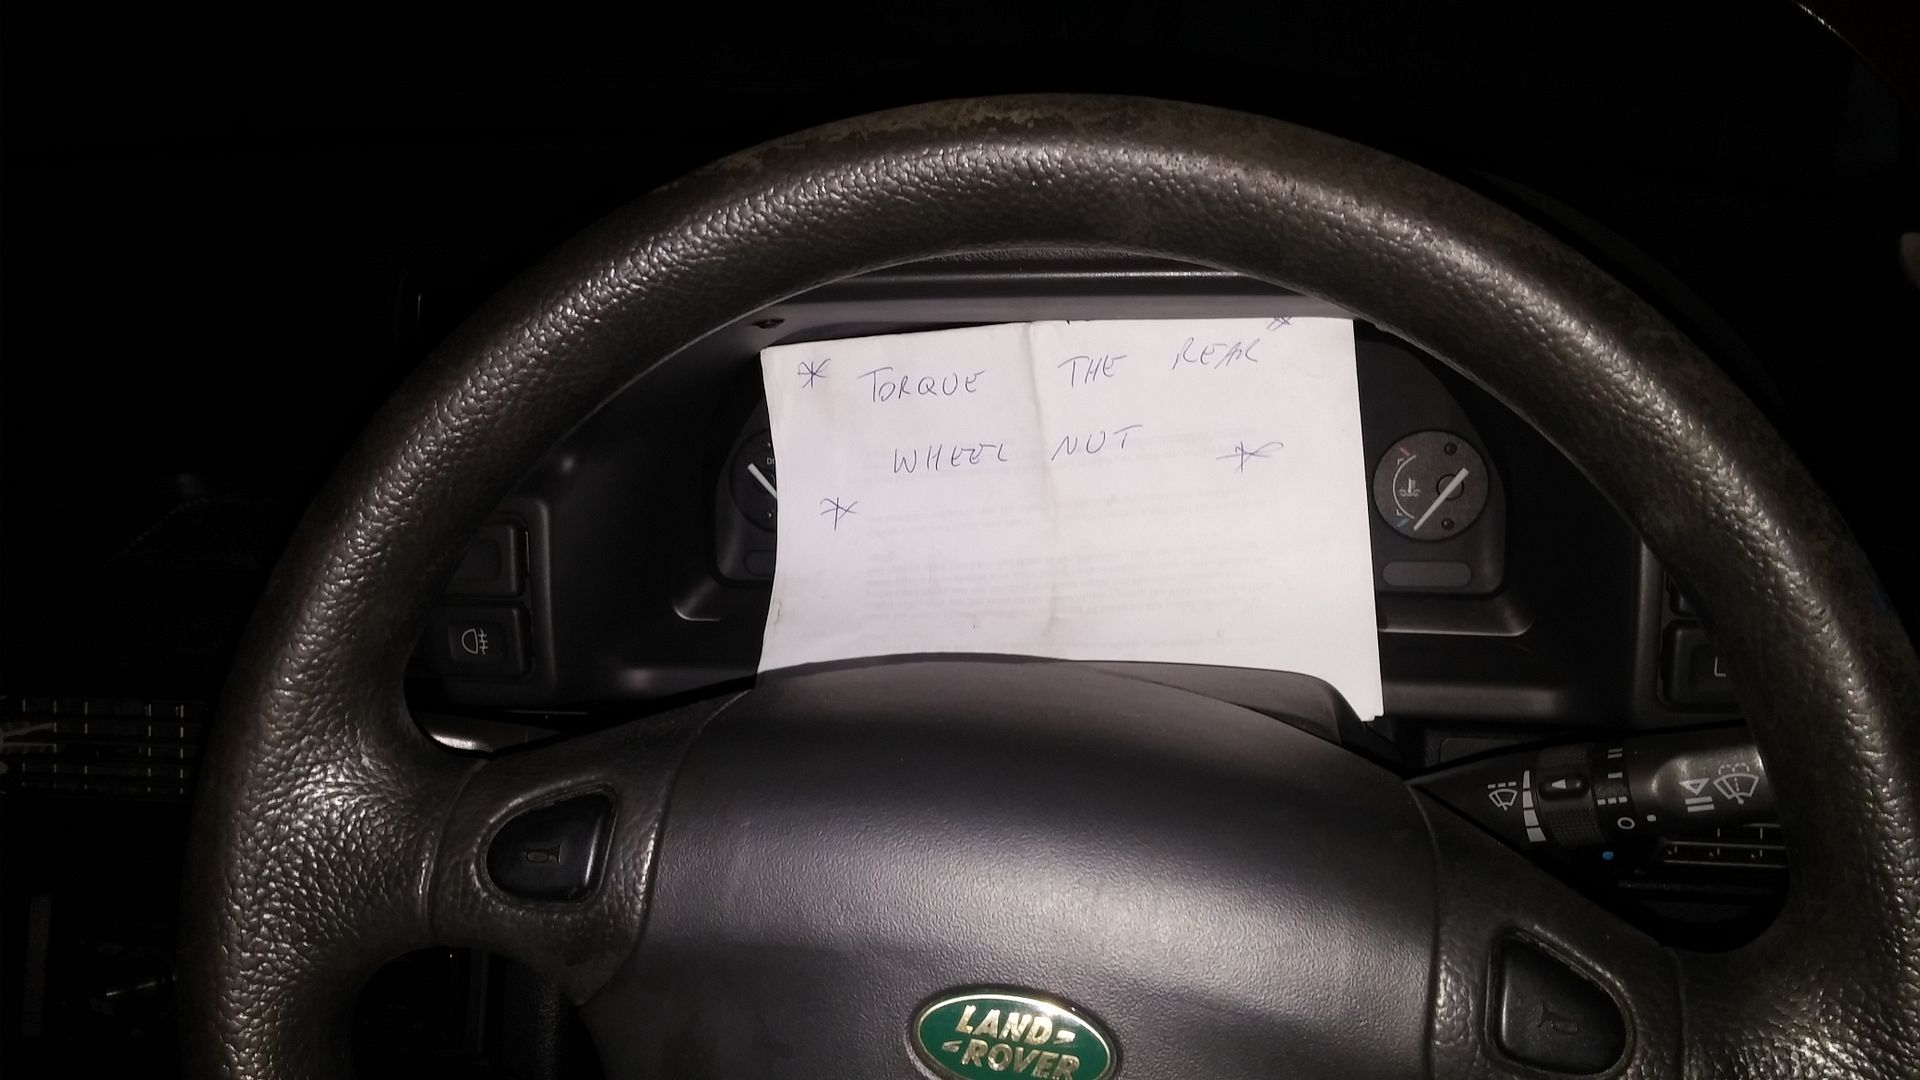 * TORQUE THE REAR *
WHEEL NUT *
*
LAND
ROVER